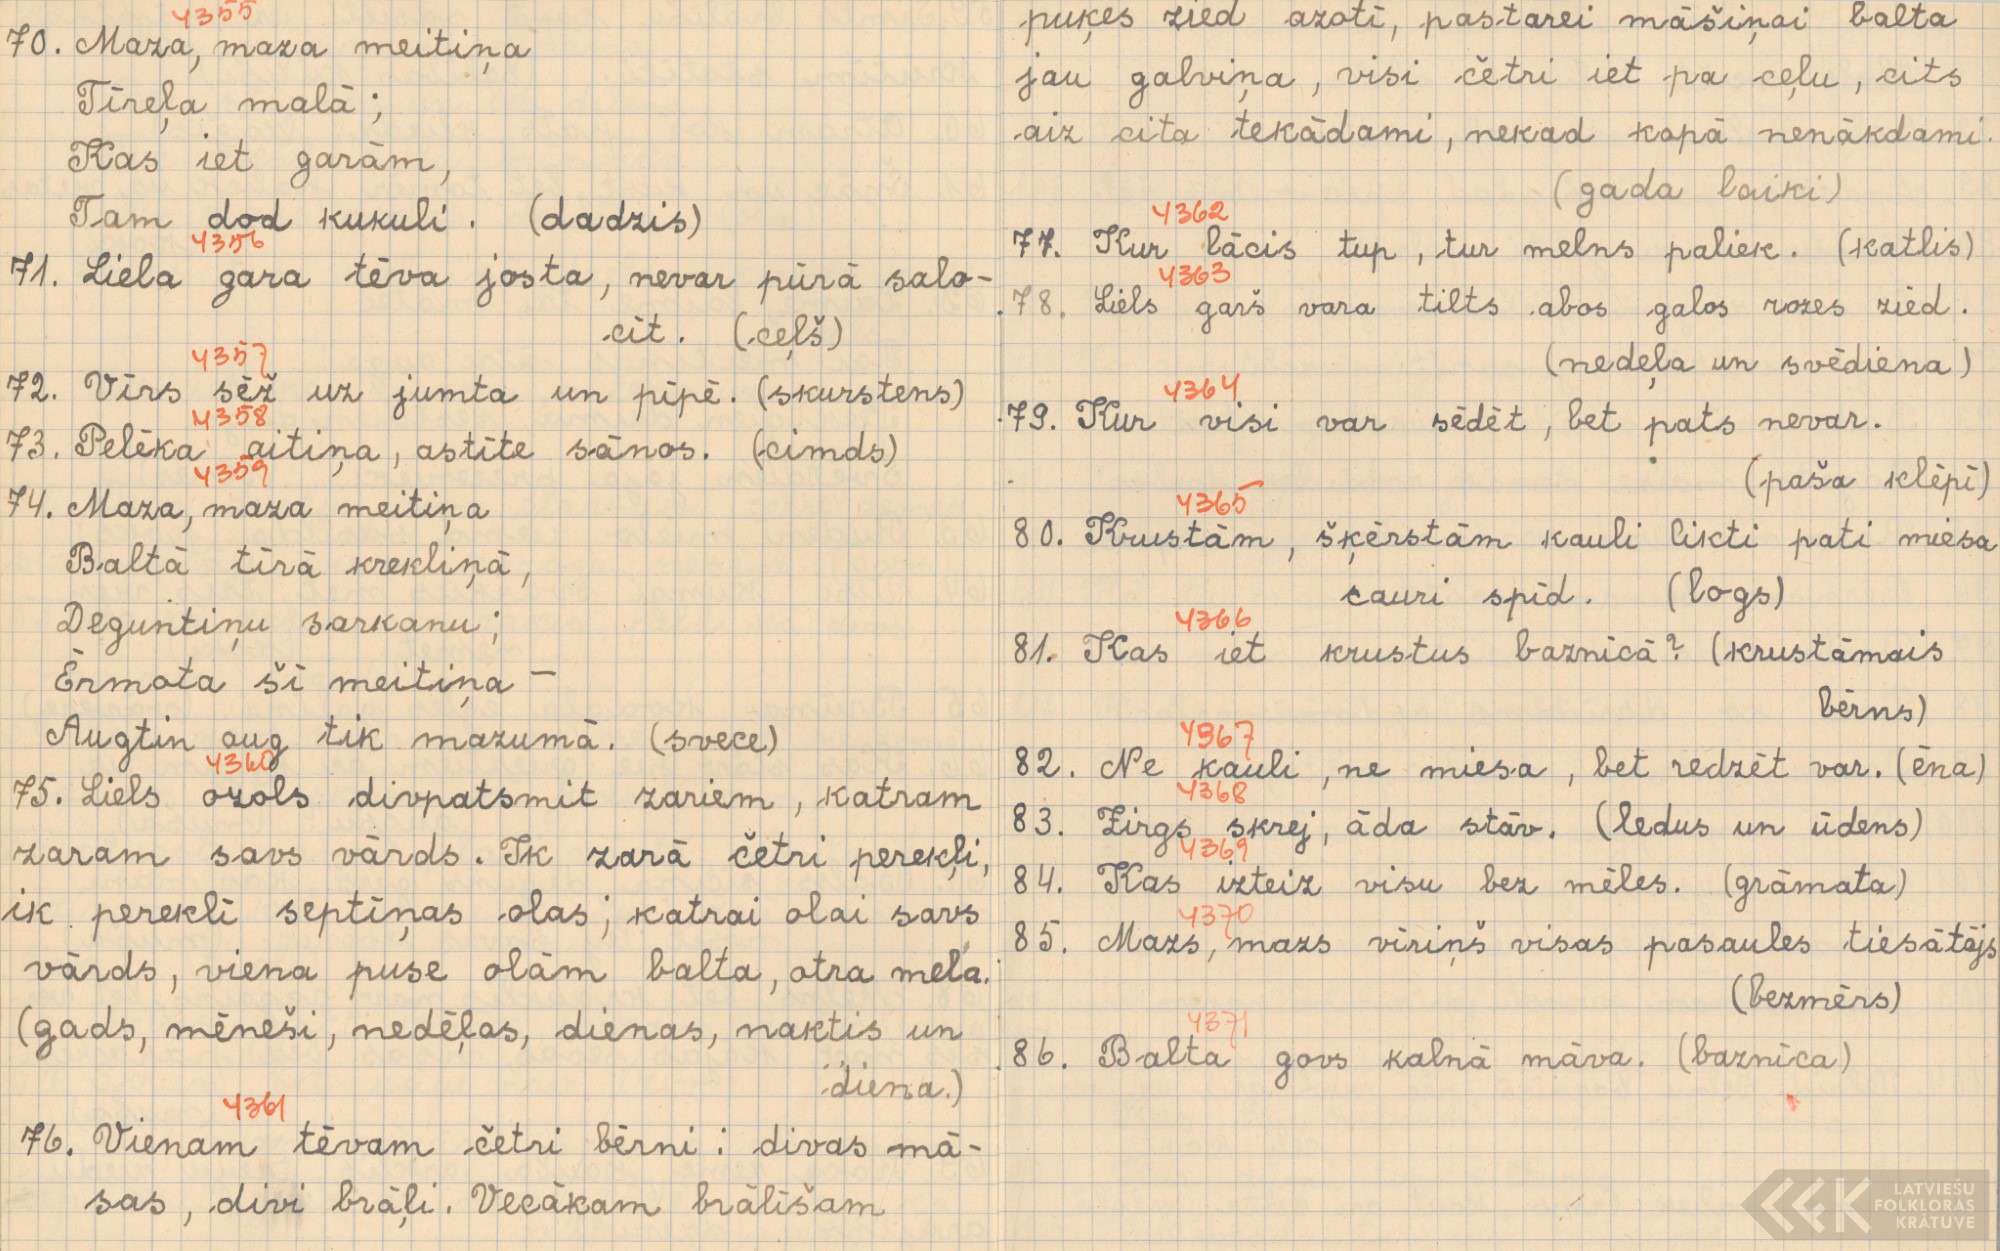 4355
70. Maza, maza meitiņa
Tīreļa malā;
Kas iet garām,
Tam dod kukuli. (dadzis)
4356
71. Liela gara tēva josta, nevar pūrā salo-
cīt. (ceļš)
4357
72. Vīrs sēž uz jumta un pīpē. (skurstens)
4358
73. Pelēka aitiņa, astīte sānos. (cimds)
4359
74. Maza, maza meitiņa
Baltā tīrā krekliņā,
Deguntiņu sarkanu;
Ērmota šī meitiņa –
Augtin aug tik mazumā. (svece)
4360
75. Liels ozols divpatsmit zariem, katram
zaram savs vārds. Ik zarā četri perekļi,
ik pereklī septiņas olas; katrai olai savs
vārds, viena puse olām balta, otra mela.
(gads, mēneši, nedēļas, dienas, naktis un
diena.)
4361
76. Vienam tēvam četri bērni: divas mā-
sas, divi brāļi. Vecākam brālīšam
puķes zied azotī, pastarei māšiņai balta
jau galviņa, visi četri iet pa ceļu, cits
aiz cita tekādami, nekad kopā nenākdami.
(gada laiki)
4362
77. Kur lācis tup, tur melns paliek. (katlis)
4363
78. Liels garš vara tilts abos galos rozes zied.
(nedeļa un svēdiena)
4364
79. Kur visi var sēdēt, bet pats nevar.
(paša klēpī)
4365
80. Krustām, šķērstām kauli likti pati miesa
cauri spīd. (logs)
4366
81. Kas iet krustus baznīcā? (krustāmais
bērns)
4367
82. Ne kauli, ne miesa, bet redzēt var. (ēna)
4368
83. Zirgs skrej, āda stāv. (ledus un ūdens)
4369
84. Kas izteiz visu bez mēles. (grāmata)
4370
85. Mazs, mazs vīriņš visas pasaules tiesātājs
(bezmērs)
4371
86. Balta govs kalnā māva. (baznīca)
LATVIEŠU
FOLKLORAS
KRĀTUVE